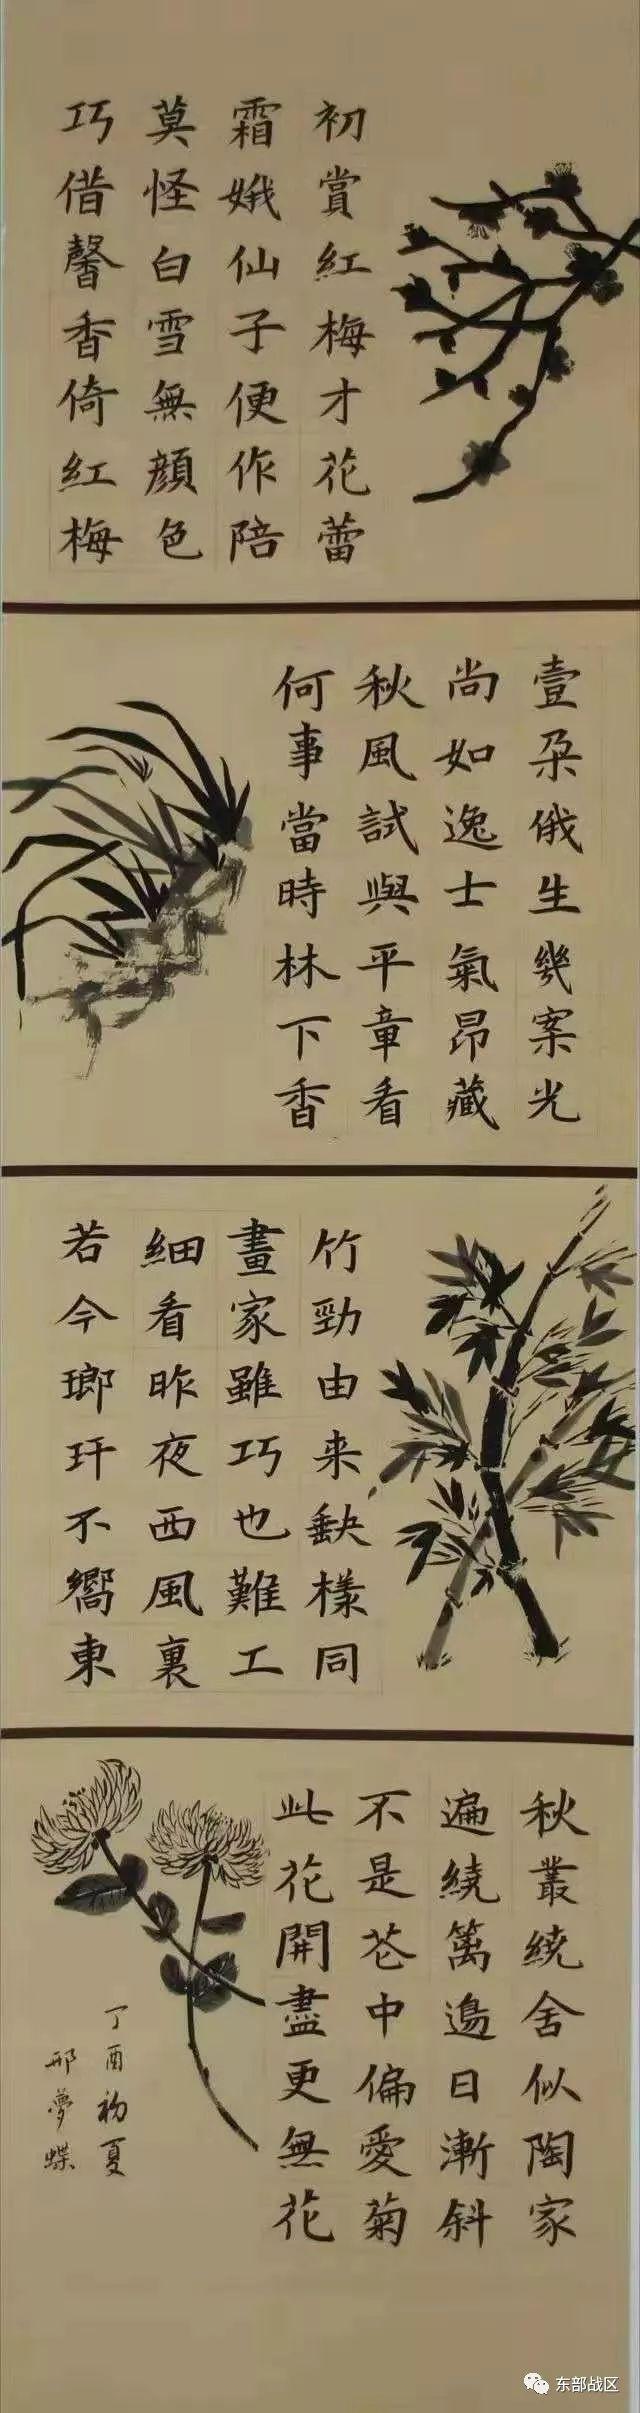 初賞紅梅才花蕾
霜娥仙子便作陪
莫怪白雪無顔色
巧借馨香倚紅梅
壹朶俄生幾案光
尚如逸士氣昂藏
秋風試與平章看
何事當時林下香
竹勁由来缺樣同
畫家雖巧也難工
細看昨夜西風裏
若今瑯玕不嚮東
秋叢繞舍似陶家
遍繞篱邊日漸斜
不是花中偏愛菊
此花開盡更無花
丁酉初夏
邢夢蝶
东部战区